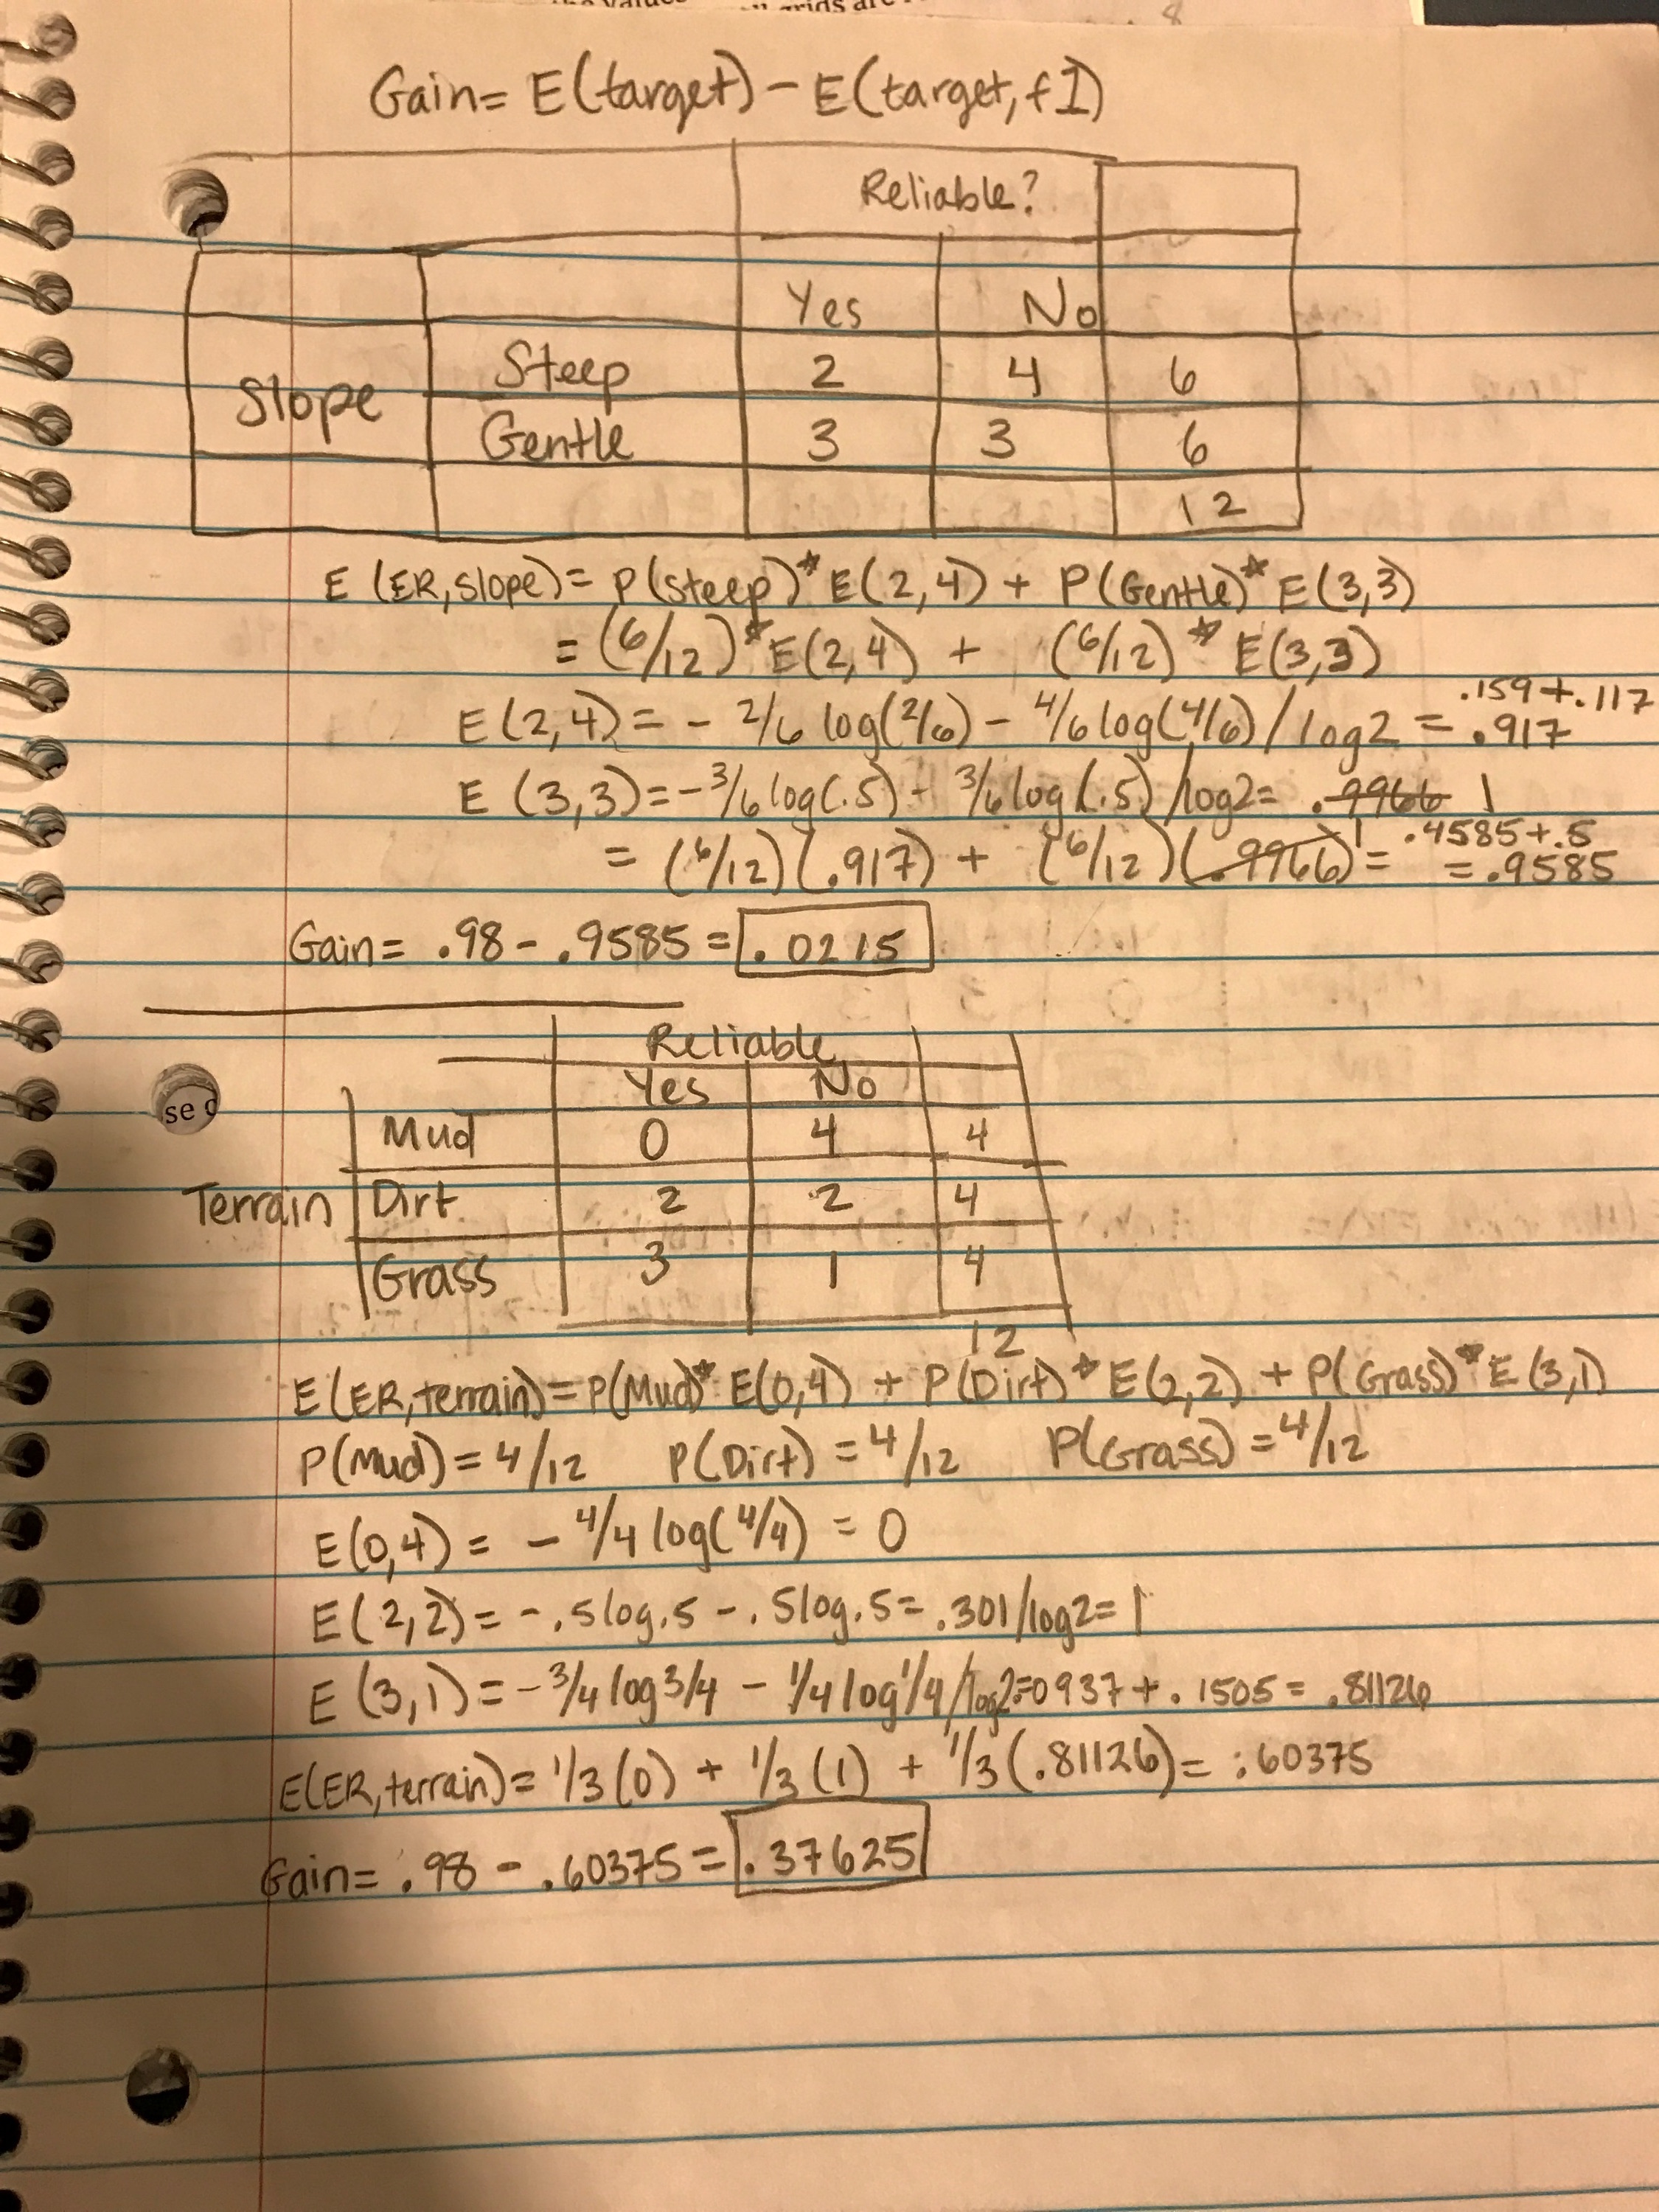 all grids are
8
Gain= E(target) - E(target, f1)
Reliable?
Yes No
Slope Steep 2 4 6
Gentle 3 3 6
12
E (ER, slope) = P(steep)* E(2,4) + P(Gentle)* E(3,3)
= (6/12)* E(2,4) + (6/12) * E(3,3)
.159+.117
E(2,4) = - 2/6 log(2/6) - 4/6 log(4/6) / log2 = .917
E (3,3) = -3/6 log(.5) - 3/6 log(.5) /log2 = .9966 1
= (6/12)(.917) + (6/12)(.9966) 1 = .4585+.5
= .9585
Gain = .98 - .9585 = .0215
Reliable
Yes No
Mud 0 4 4
Terrain Dirt 2 2 4
Grass 3 1 4
12
E(ER, terrain) = P(Mud)* E(0,4) + P(Dirt)* E(2,2) + P(Grass)* E(3,1)
P(Mud) = 4/12 P(Dirt) = 4/12 P(Grass) = 4/12
E(0,4) = - 4/4 log(4/4) = 0
E(2,2) = -.5log.5 - .5log.5 = .301/log2 = 1
E (3,1) = -3/4 log 3/4 - 1/4 log 1/4 /log2 = .0937 + .1505 = .81126
E(ER, terrain) = 1/3 (0) + 1/3 (1) + 1/3 (.81126) = .60375
Gain = .98 - .60375 = .37625
se